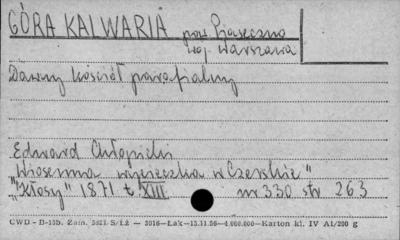 GÓRA KALWARIA pow. Piaseczno
woj. Warszawa
Dawny kościół parafialny
Edward Chłopicki
"Wiosenna wycieczka w Czerskie"
"Kłosy" 1871 t. XIII nr 330 str 263
CWD - D-15b. Zam. S/Łż — 3016—Łak—13.11.56—4.000.000—Karton kl. IV A1/200 g